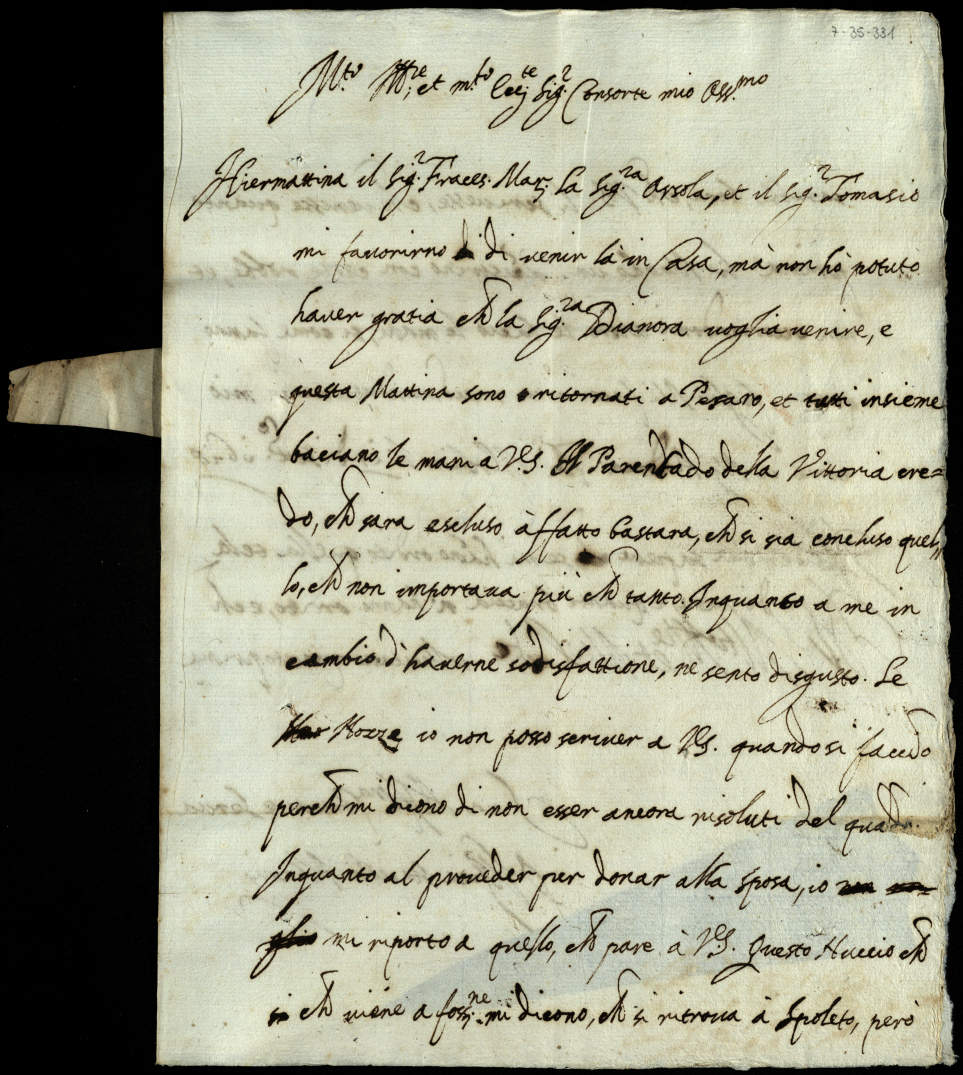 7-35-331
M.to Ill.re et m.to Ecc.te Sig.r Consorte mio Oss.mo
Hiermattina il Sig.r Fraces. Mar. la Sig.ra Orsola, et il Sig.r Tomasio
mi favorirno di di venir là in Casa, mà non hò potuto
haver gratia ch la Sig.ra Dianora voglia venire, e
questa Mattina sono ritornati a Pesaro, et tutti insieme
baciano le mani a V.S. Il Parentado della Vittoria cre=
do, ch sara escluso àffatto bastara, ch si sia concluso quel=
lo, ch non importava più ch tanto. Inquanto a me in
cambio d'haverne sodisfattione, ne sento disgusto. Le
Nozze io non posso scriver a V.S. quando si faccio
perch mi dicono di non esser ancora risoluti del quado.
Inquanto al proveder per donar alla sposa, io non vo=
glio mi riporto a quello, ch pare à V.S. Questo Nuccio ch
ch viene a foss.ne mi dicono, ch si ritrova à Spoleto, però